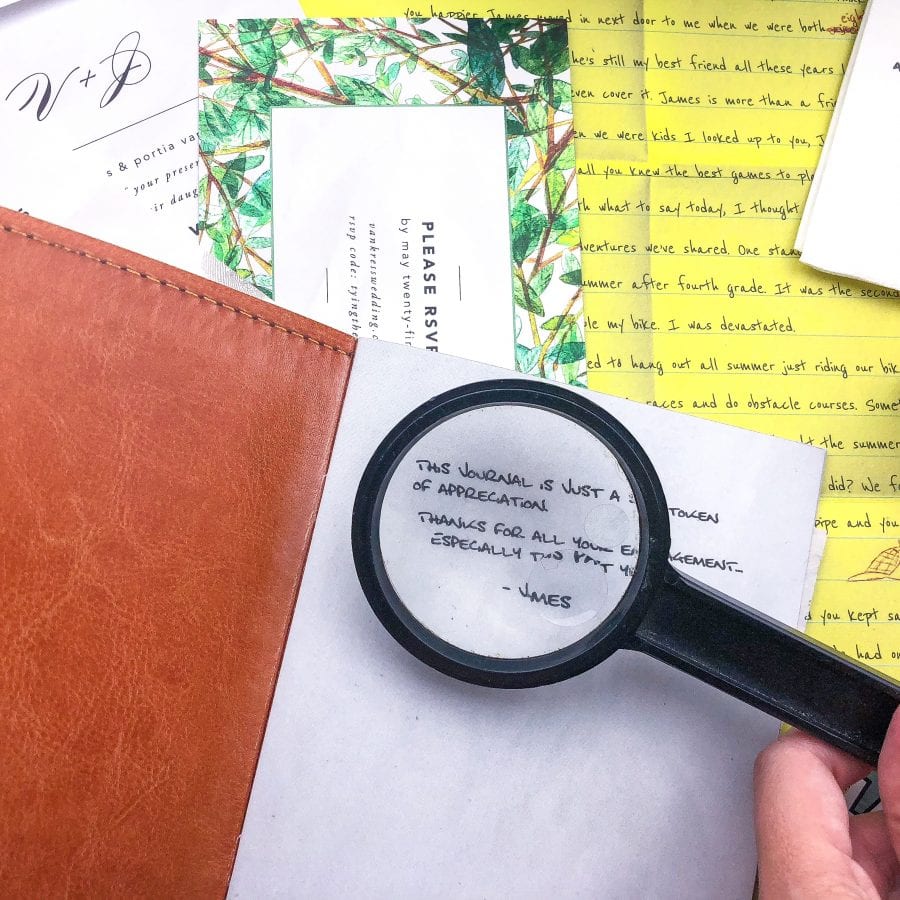 J + N
s & portia van
"your presen
ir daug
PLEASE RSVP
by may twenty-fir
vankresswedding.c
rsvp code: tyingthe
you happier. James moved in next door to me when we were both eigh
he's still my best friend all these years
even cover it. James is more than a fri
en we were kids I looked up to you, J
all you knew the best games to pla
th what to say today, I thought
dventures we've shared. One stan
ummer after fourth grade. It was the second
ole my bike. I was devastated.
ed to hang out all summer just riding our bik
races and do obstacle courses. Somet
t the summer
did? We fo
pipe and you
d you kept sa
had on
THIS JOURNAL IS JUST A TOKEN
OF APPRECIATION.
THANKS FOR ALL YOUR ENGAGEMENT...
ESPECIALLY THIS PAST
- JAMES